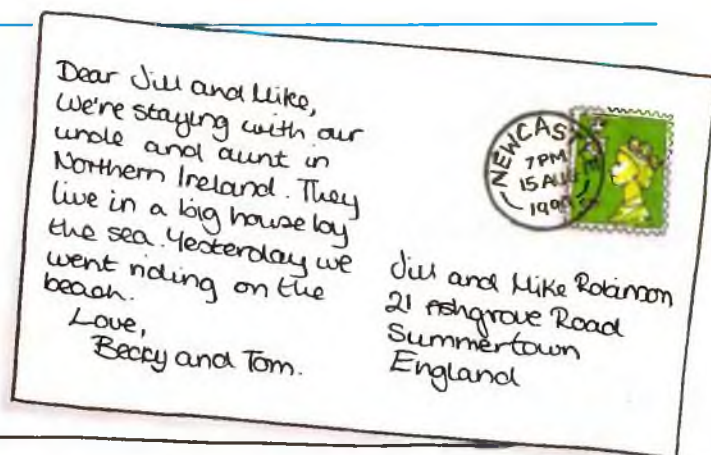 Dear Jill and Mike,
We're staying with our
uncle and aunt in
Northern Ireland. They
live in a big house by
the sea. Yesterday we
went riding on the
beach.
Love,
Becky and Tom.
NEWCAS
7PM
15 AU
199
Jill and Mike Robinson
21 Ashgrove Road
Summertown
England